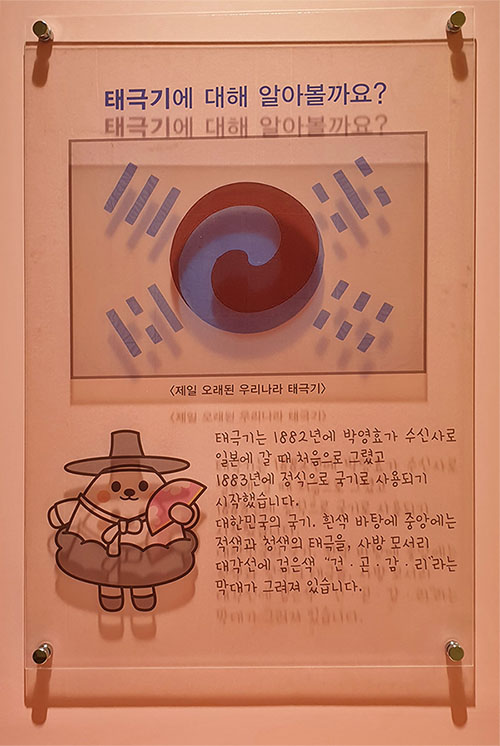 태극기에 대해 알아볼까요?
〈제일 오래된 우리나라 태극기〉
태극기는 1882년에 박영효가 수신사로
일본에 갈 때 처음으로 그렸고
1883년에 정식으로 국기로 사용되기
시작했습니다.
대한민국의 국기. 흰색 바탕에 중앙에는
적색과 청색의 태극을, 사방 모서리
대각선에 검은색 “건·곤·감·리”라는
막대가 그려져 있습니다.